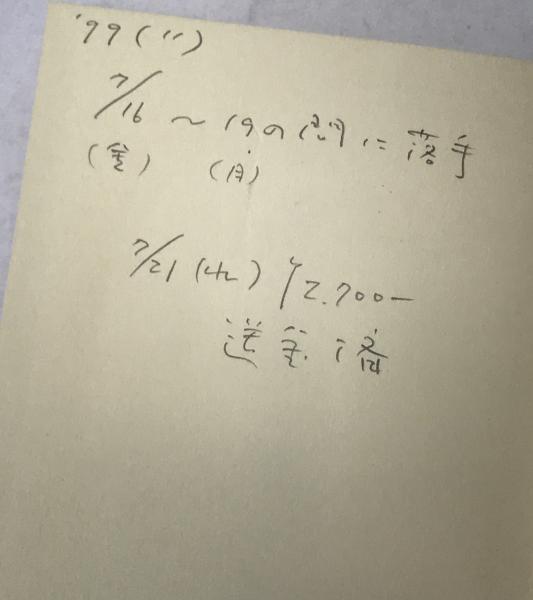 '99 (11)
7/16 〜 19の間に落手
(金) (月)
7/21 (水) ¥2.700ー
送金済